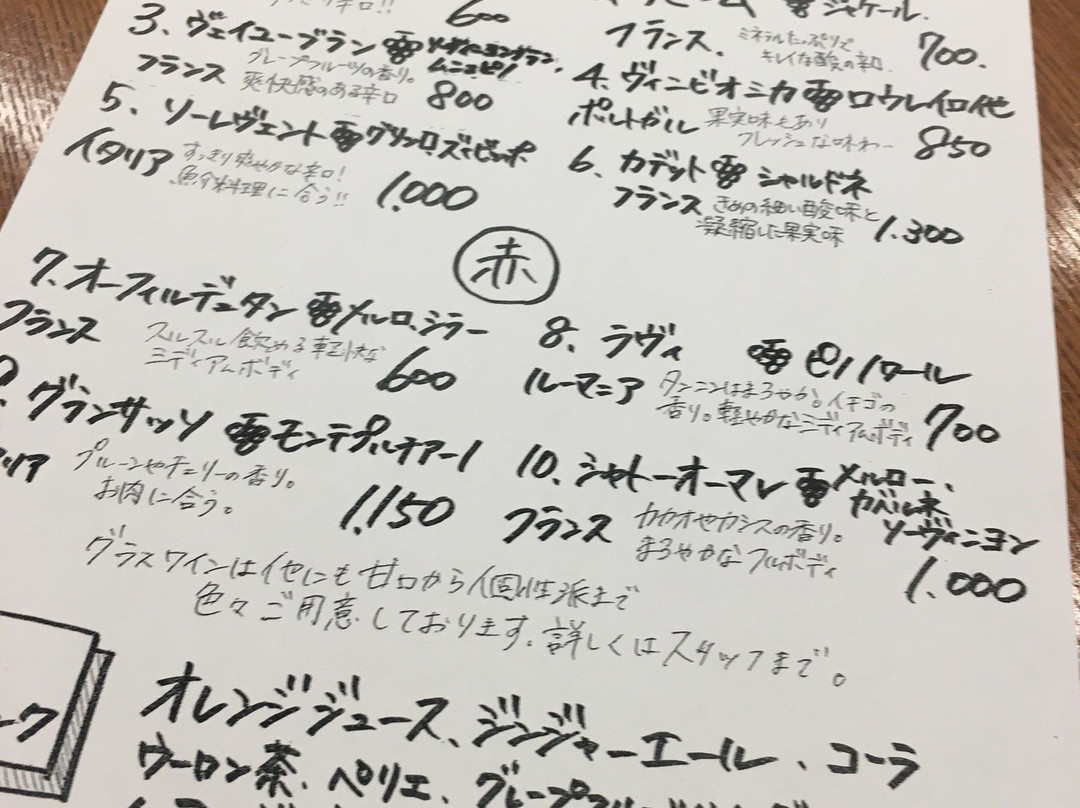 辛口!! 600
ジャケール.
フランス. ミネラルたっぷりで
キレイな酸の辛口 700.
3. ヴェイユーブラン ソーヴィニヨンブラン,
フランス グレープフルーツの香り。
爽快感のある辛口 800
4. ヴィニビオミカ ロウレイロ他
ポルトガル 果実味もあり
フレッシュな味わー 850
5. ソーレヴェント
イタリア すっきり爽やかな辛口!
魚介料理に合う!! 1.000
6. カデット シャルドネ
フランス きめの細い酸味と
凝縮した果実味 1.300
赤
7. オーフィルデュタン メルロ、シラー
フランス スルスル飲める軽快な
ミディアムボディ 600
8. ラヴィ ピノノワール
ルーマニア タンニンはまろやか。イチゴの
香り。軽やかなミディアムボディ 700
グランサッソ モンテプルチアーノ
リア プルーンやチェリーの香り。
お肉に合う。 1.150
10. シャトーオーマレ メルロー、
カベルネ
ソーヴィニヨン
フランス カカオやカシスの香り。
まろやかなフルボディ 1.000
グラスワインは他にも甘口から個性派まで
色々ご用意しております。詳しくはスタッフまで。
ーク
オレンジジュース、ジンジャーエール、コーラ
ウーロン茶、ペリエ、グレープフルーツ